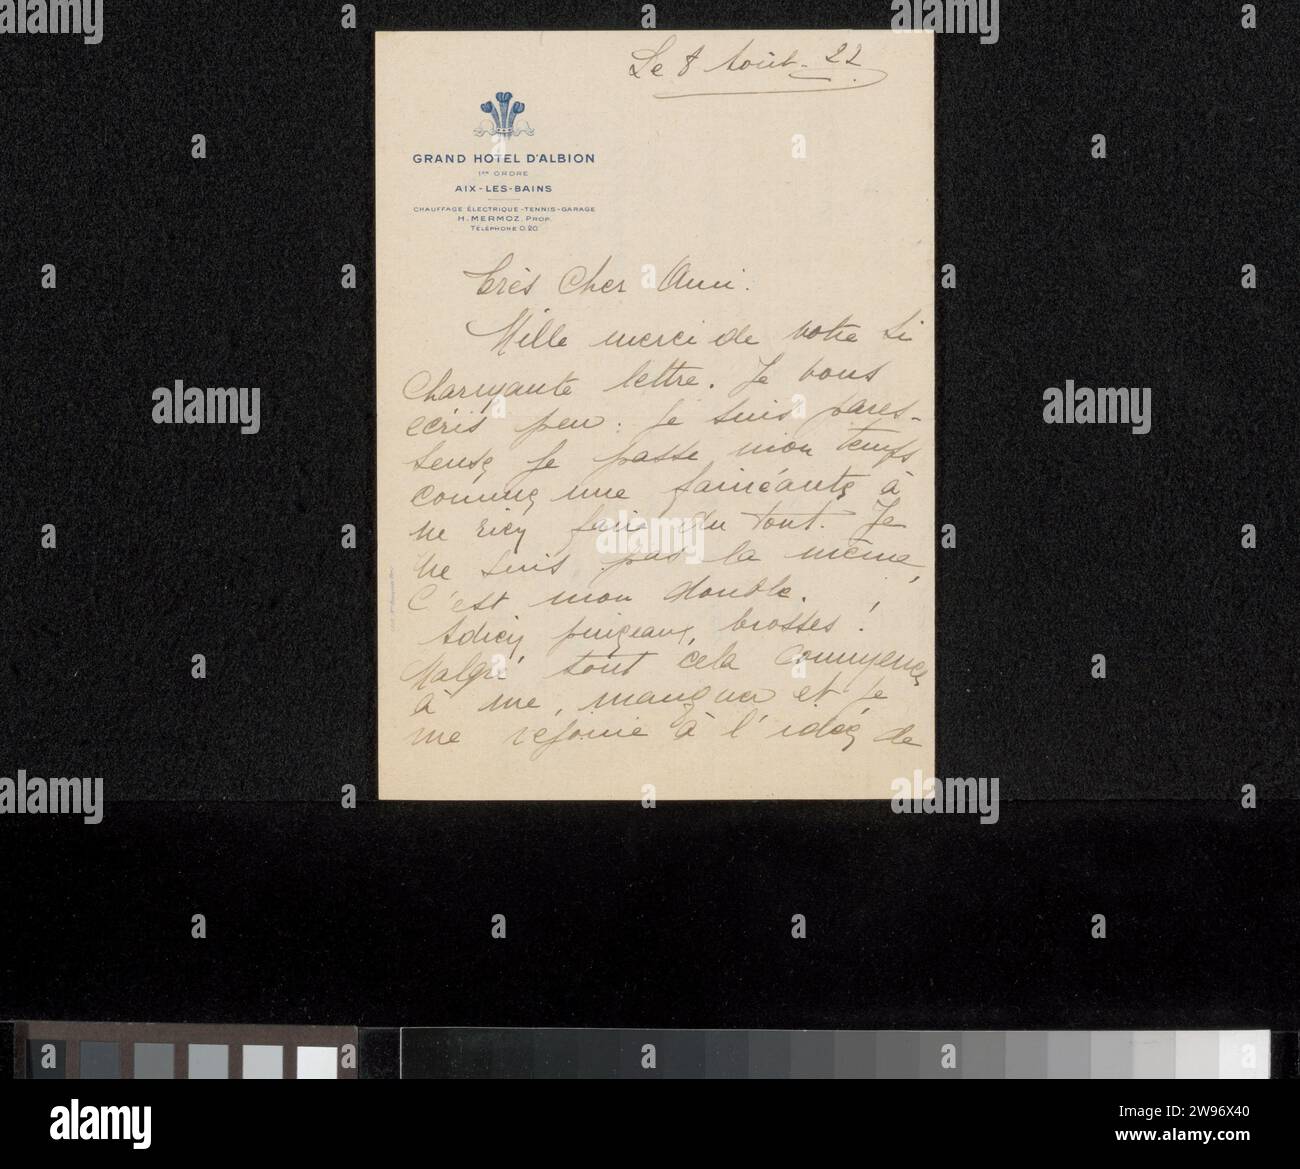 Le 8 Août. 22
GRAND HOTEL D'ALBION
1ER ORDRE
AIX-LES-BAINS
CHAUFFAGE ÉLECTRIQUE-TENNIS-GARAGE
H. MERMOZ, PROP.
TÉLÉPHONE 0.20
Très Cher Ami.
Mille merci de votre si
charmante lettre. Je vous
écris peu. Je suis pares-
seuse je passe mon temps
comme une fainéante à
ne rien faire du tout. Je
ne suis pas la même,
C'est mon double.
Adieu pinceaux, brosses!
Malgré tout cela commence
à me manquer et je
me réjouie à l'idée de
alamy
Image ID: 2W96X40
www.alamy.com